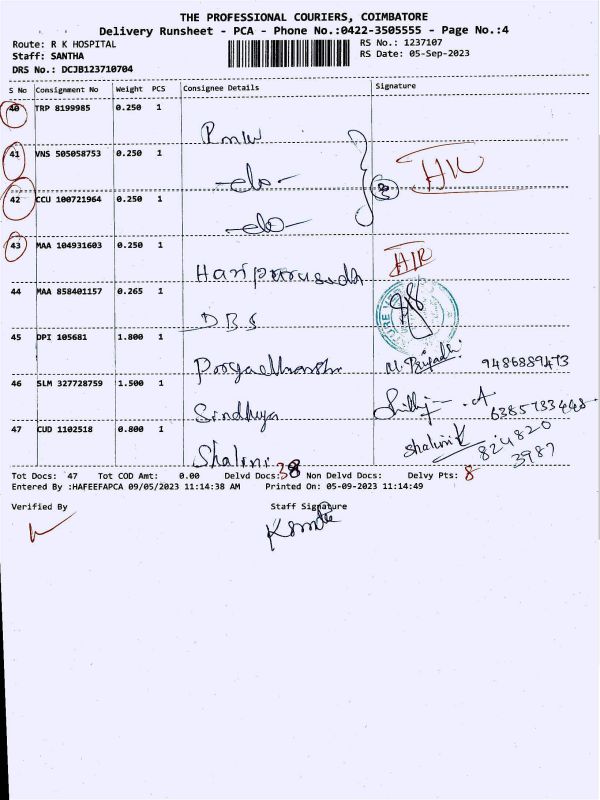 THE PROFESSIONAL COURIERS, COIMBATORE
Delivery Runsheet - PCA - Phone No.:0422-3505555 - Page No.:4
Route: R K HOSPITAL
RS No.: 1237107
Staff: SANTHA
RS Date: 05-Sep-2023
DRS No.: DCJB123710704
S No Consignment No Weight PCS Consignee Details Signature
40 TRP 8199985 0.250 1
41 VNS 505058753 0.250 1
-do-
42 CCU 100721964 0.250 1
-do-
43 MAA 104931603 0.250 1
44 MAA 858401157 0.265 1
DBS
45 DPI 105681 1.800 1
9486889473
46 SLM 327728759 1.500 1
Sindhya
47 CUD 1102518 0.800 1
Shalini
Shalini K
824820
3987
Tot Docs: 47 Tot COD Amt: 0.00 Delvd Docs: 38 Non Delvd Docs: Delvy Pts: 8
Entered By :HAFEEFAPCA 09/05/2023 11:14:38 AM Printed On: 05-09-2023 11:14:49
Verified By Staff Signature